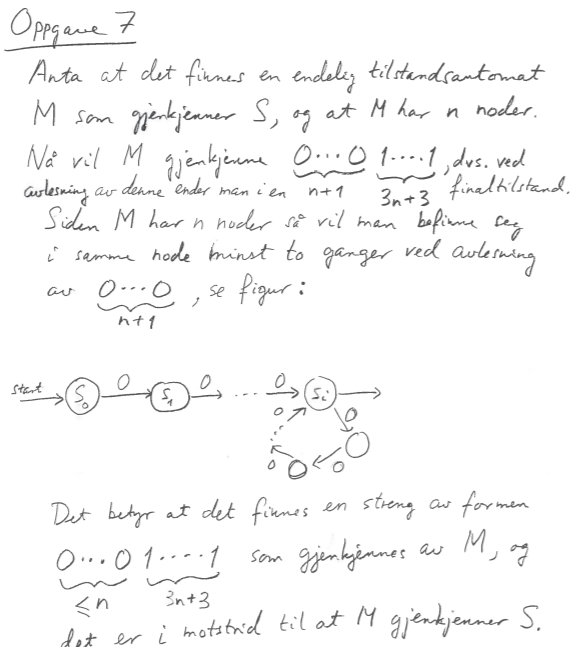 Oppgave 7
Anta at det finnes en endelig tilstandsautomat
M som gjenkjenner S, og at M har n noder.
Nå vil M gjenkjenne 0···0 1····1, dvs. ved
avlesning av denne ender man i en n+1 3n+3 finaltilstand.
Siden M har n noder så vil man befinne seg
i samme node minst to ganger ved avlesning
av 0···0, se figur:
n+1
start S₀ 0 S₁ 0 ···· 0 Sᵢ
0 0
0 0
Det betyr at det finnes en streng av formen
0···0 1····1 som gjenkjennes av M, og
≤n 3n+3
det er i motstrid til at M gjenkjenner S.